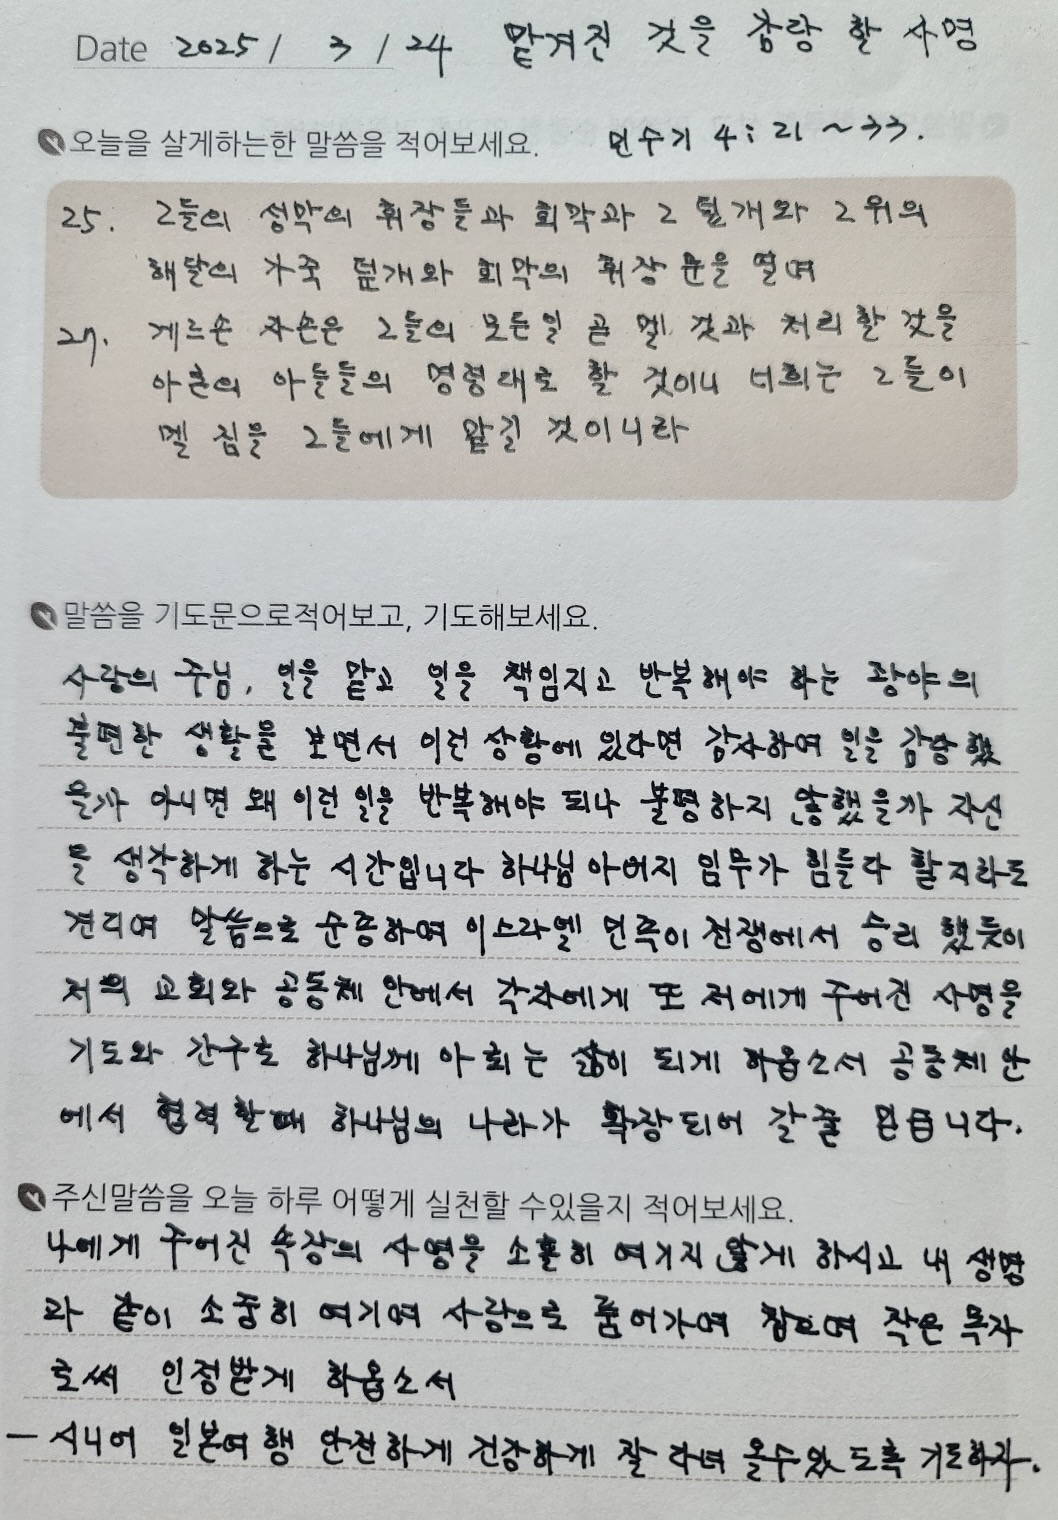 Date 2025 / 3 / 24 맡겨진 것을 감당 할 사명
오늘을 살게하는한 말씀을 적어보세요. 민수기 4 : 21 ~ 33.
25. 그들의 성막의 휘장들과 회막과 그 덮개와 그 위의
해달의 가죽 덮개와 회막의 휘장 문을 멜며
27. 게르손 자손은 그들의 모든일 곧 멜 것과 처리할 것을
아론의 아들들의 명령대로 할 것이니 너희는 그들이
멜 짐을 그들에게 맡길 것이니라
말씀을 기도문으로적어보고, 기도해보세요.
사랑의 주님, 일을 맡고 일을 책임지고 반복해야 하는 광야의
불편한 생활을 보면서 이런 상황에 있다면 감사하며 일을 감당 했
을까 아니면 왜 이런 일을 반복해야 되나 불평하지 않했을까 자신
을 생각하게 하는 시간입니다 하나님 아버지 임무가 힘들다 할지라도
견디며 말씀으로 순종하여 이스라엘 민족이 전쟁에서 승리 했듯이
저희 교회와 공동체 안에서 각자에게 또 저에게 주어진 사명을
기도와 간구로 하나님께 아뢰는 삶이 되게 하옵소서 공동체 안
에서 협력할때 하나님의 나라가 확장되어 갈줄 믿습니다.
주신말씀을 오늘 하루 어떻게 실천할 수있을지 적어보세요.
나에게 주어진 속장의 사명을 소홀히 여기지 않게 하시고 내 생명
과 같이 소중히 여기며 사랑으로 품어가며 참으며 작은 목자
로써 인정받게 하옵소서
- 시니어 일본여행 안전하게 건강하게 잘 다녀 올수있도록 기도하자.